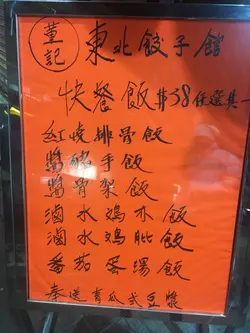 董記
東北餃子館
快餐飯 $38任選其一
紅燒排骨飯
醬豬手飯
醬骨架飯
滷水鷄亦飯
滷水鷄髀飯
番茄蛋湯飯
奉送青瓜式豆漿